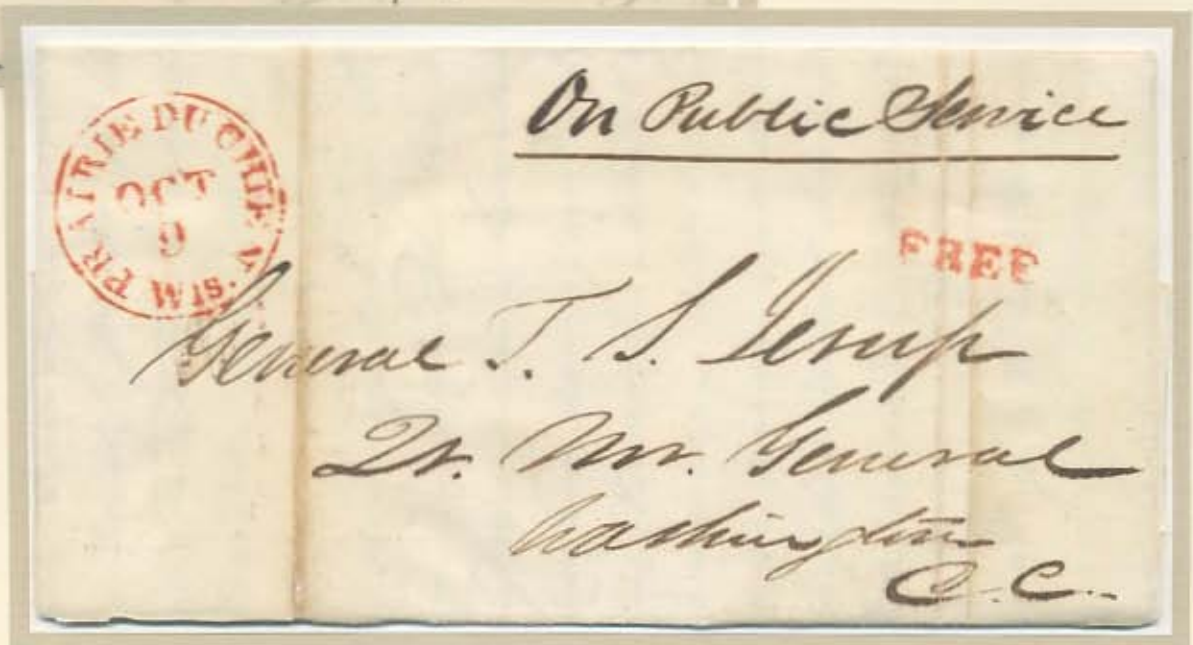 On Public Service
PRAIRIE DU CHIEN Wis.
OCT
9
FREE
General T. S. Jesup
Qr. Mr. General
Washington
D.C.